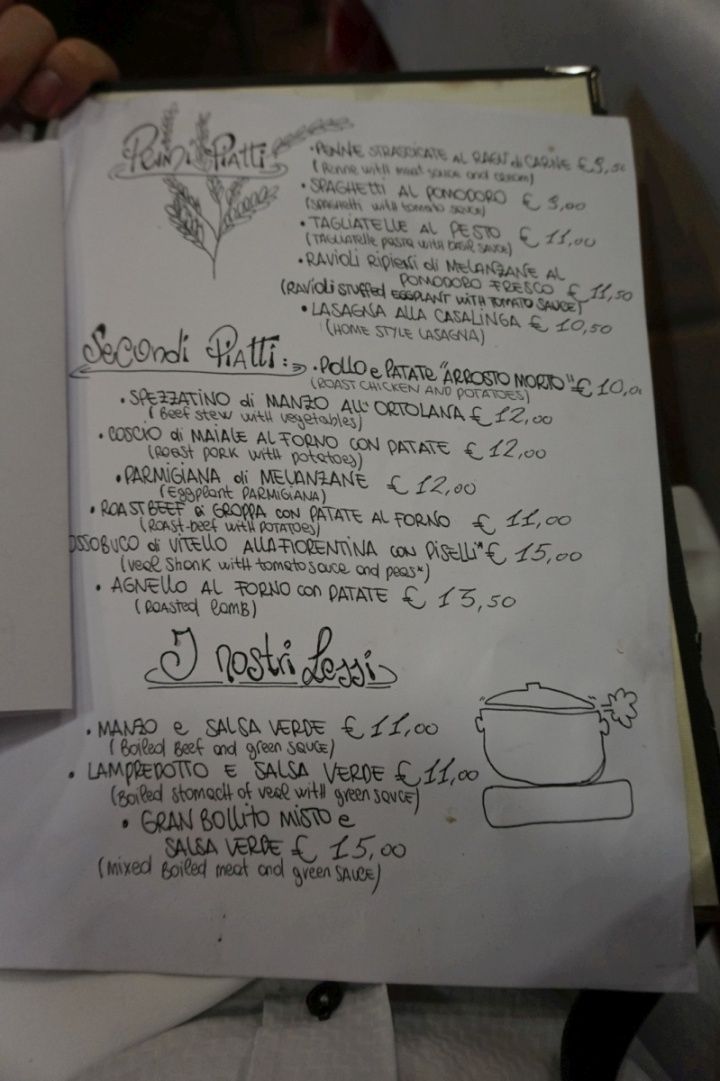 Primi Piatti
• PENNE STRASCICATE AL RAGÙ di CARNE € 9,50
(Penne with meat sauce and cream)
• SPAGHETTI AL POMODORO € 9,00
(spaghetti with tomato sauce)
• TAGLIATELLE AL PESTO € 11,00
(TAGLIATELLE pasta with basil sauce)
• RAVIOLI RIPIENI di MELANZANE AL
POMODORO FRESCO € 11,50
(RAVIOLI STUFFED EGGPLANT WITH TOMATO SAUCE)
• LASAGNA ALLA CASALINGA € 10,50
(HOME STYLE LASAGNA)
Secondi Piatti:
• POLLO e PATATE "ARROSTO MORTO" € 10,0
(ROAST CHICKEN AND POTATOES)
• SPEZZATINO di MANZO ALL'ORTOLANA € 12,00
(Beef stew with vegetables)
• COSCIO di MAIALE AL FORNO CON PATATE € 12,00
(ROAST PORK with potatoes)
• PARMIGIANA di MELANZANE € 12,00
(Eggplant PARMIGIANA)
• ROASTBEEF di GROPPA con PATATE AL FORNO € 11,00
(ROAST-beef with POTATOES)
OSSOBUCO di VITELLO ALLA FIORENTINA con PISELLI* € 15,00
(veal shank with tomato sauce and peas*)
• AGNELLO AL FORNO con PATATE € 13,50
(ROASTED lamb)
I nostri Lessi
• MANZO e SALSA VERDE € 11,00
(Boiled Beef and green SAUCE)
• LAMPREDOTTO E SALSA VERDE € 11,00
(Boiled stomach of veal with green sauce)
• GRAN BOLLITO MISTO e
SALSA VERDE € 15,00
(Mixed Boiled meat and green SAUCE)